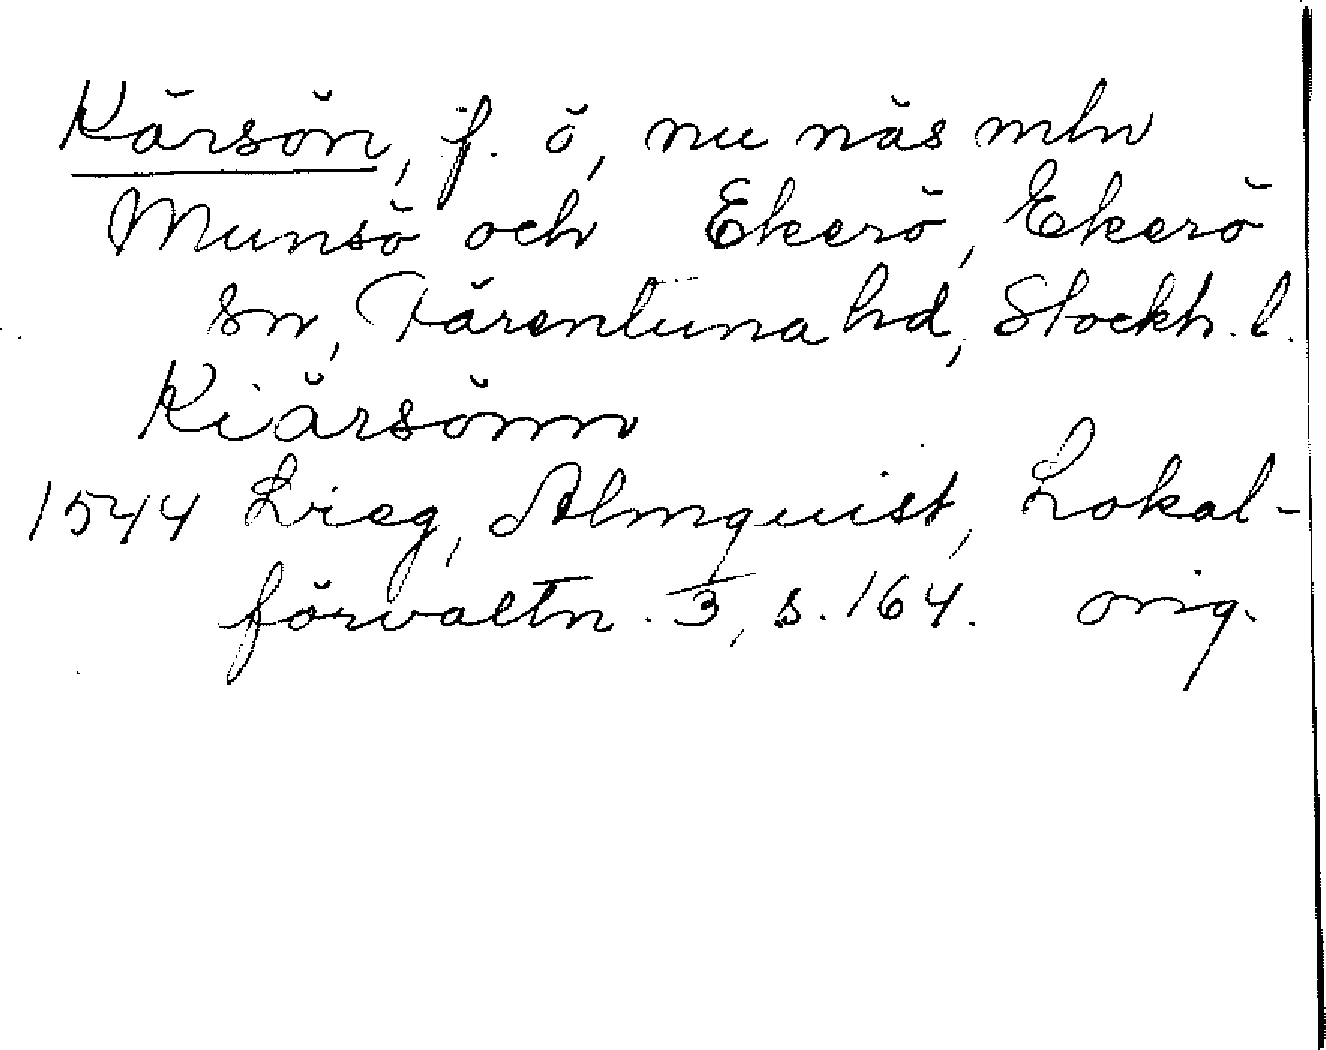 Kärsön, f. ö, nu näs mln
Munsö och Ekerö, Ekerö
sn, Färentuna hd, Stockh. l.
Kiärsönn
1544 Lieg, Almquist, Lokal-
förvaltn. 3, s. 164. orig.